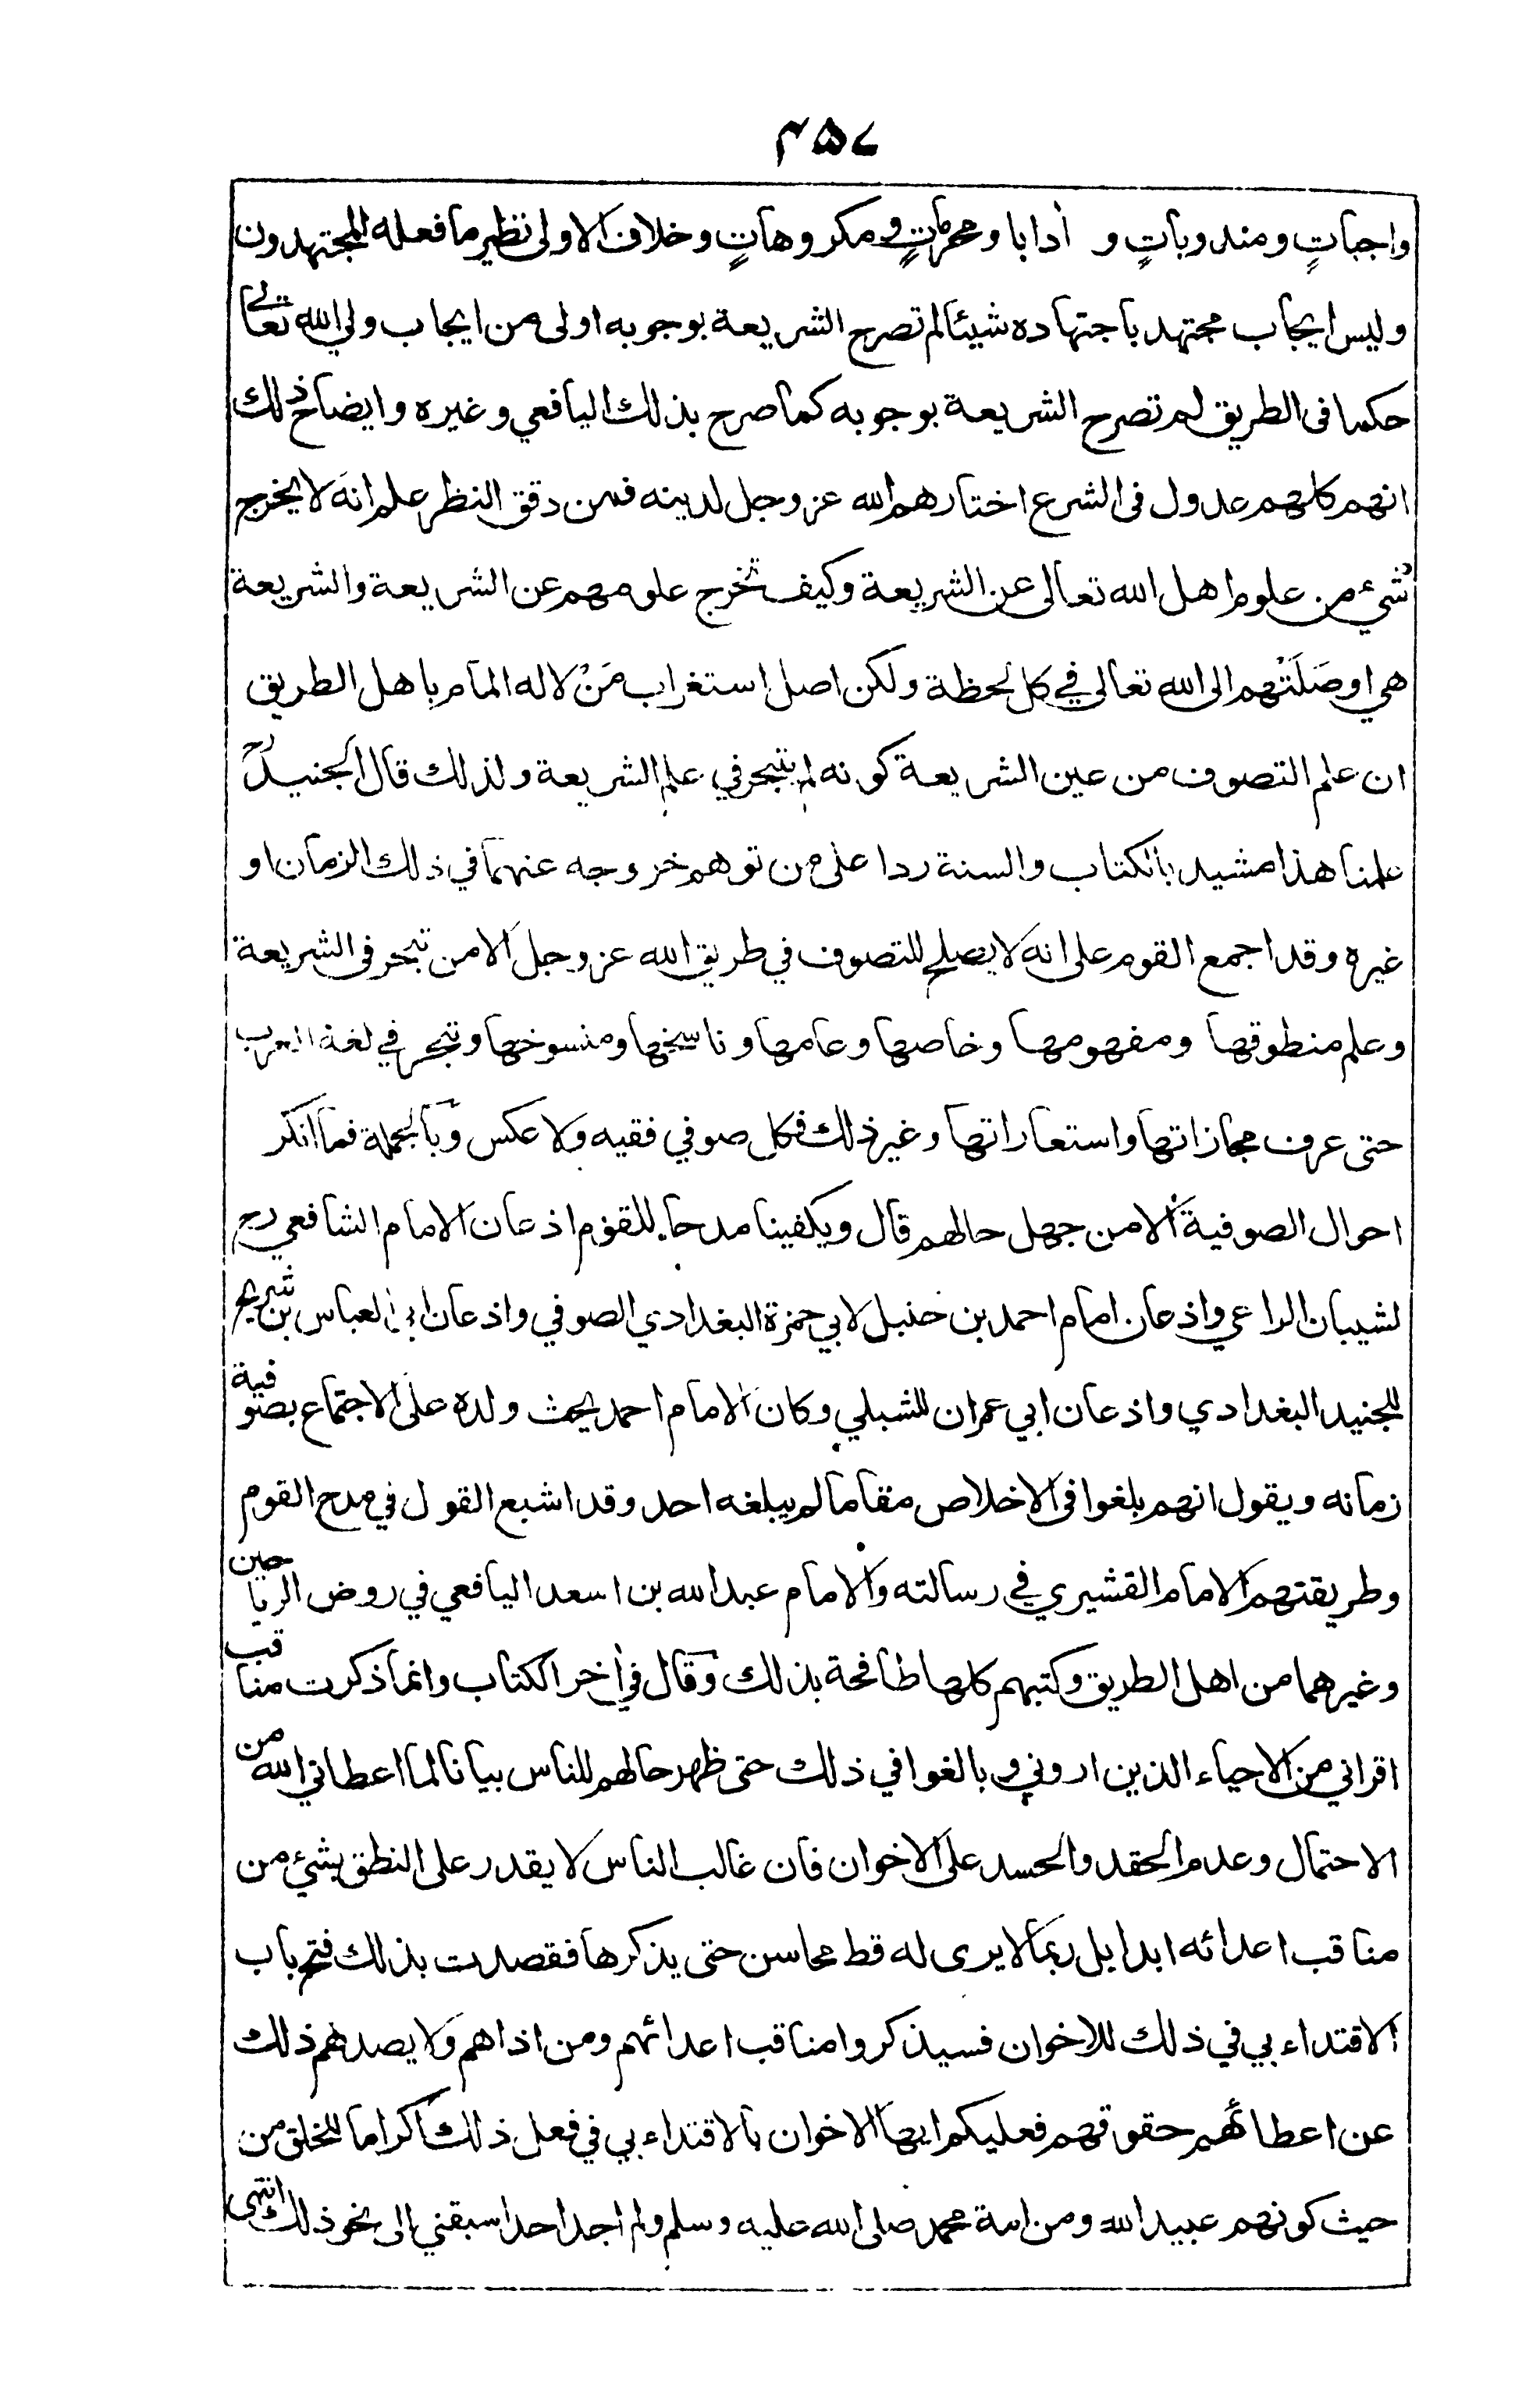 ۴۵۷
واجباتٍ ومندوباتٍ و اٰدابا ومحرماتٍ ومكروهاتٍ وخلاف الاولى نظير ما فعله المجتهدون
وليس ايجاب مجتهد باجتهاده شيئا لم تصرح الشريعة بوجوبه اولى من ايجاب ولي الله تعالى
حكما فى الطريق لم تصرح الشريعة بوجوبه كما صرح بذلك اليافعي وغيره وايضاح ذلك
انهم كلهم عدول فى الشرع اختارهم الله عز وجل لدينه فمن دقق النظر علم انه لا يخرج
شيء من علوم اهل الله تعالى عن الشريعة وكيف تخرج علومهم عن الشريعة والشريعة
هي اوصَلَتْهم الى الله تعالى في كل لحظة ولكن اصل استغراب مَنْ لا له المام باهل الطريق
ان علم التصوف من عين الشريعة كونه لم يتبحر في علم الشريعة ولذلك قال الجنيد رح
علمنا هذا مشيد بالكتاب والسنة ردا على من توهم خروجه عنهما في ذلك الزمان او
غيره وقد اجمع القوم على انه لا يصلح للتصوف في طريق الله عز وجل الا من تبحر فى الشريعة
وعلم منطوقها ومفهومها وخاصها وعامها وناسخها ومنسوخها وتبحر في لغة العرب
حتى عرف مجازاتها واستعاراتها وغير ذلك فكل صوفي فقيه ولا عكس وبالجملة فما انكر
احوال الصوفية الا من جهل حالهم قال ويكفينا مدحا للقوم اذعان الامام الشافعي رح
لشيبان الراعي واذعان امام احمد بن حنبل لابي حمزة البغدادي الصوفي واذعان ابي العباس بن شريح
للجنيد البغدادي واذعان ابي عمران للشبلي وكان الامام احمد يحث ولده على الاجتماع بصوفية
زمانه ويقول انهم بلغوا فى الاخلاص مقاما لم يبلغه احد وقد اشبع القول في مدح القوم
وطريقتهم الامام القشيري في رسالته والامام عبد الله بن اسعد اليافعي في روض الرياحين
وغيرهما من اهل الطريق وكتبهم كلها طافحة بذلك وقال في اٰخر الكتاب وانما ذكرت مناقب
اقراني من الاحياء الذين اروني وبالغوا في ذلك حتى ظهر حالهم للناس بيانا لما اعطاني الله من
الاحتمال وعدم الحقد والحسد على الاخوان فان غالب الناس لا يقدر على النطق بشيء من
مناقب اعدائه ابدا بل ربما لا يرى له قط محاسن حتى يذكرها فقصدت بذلك فتح باب
الاقتداء بي في ذلك للاخوان فسيذكروا مناقب اعدائهم ومن اذاهم ولا يصدهم ذلك
عن اعطائهم حقوقهم فعليكم ايها الاخوان بالاقتداء بي في فعل ذلك اكراما للخلق من
حيث كونهم عبيد الله ومن امة محمد صلى الله عليه وسلم ولم اجد احدا سبقني الى نحو ذلك انتهى